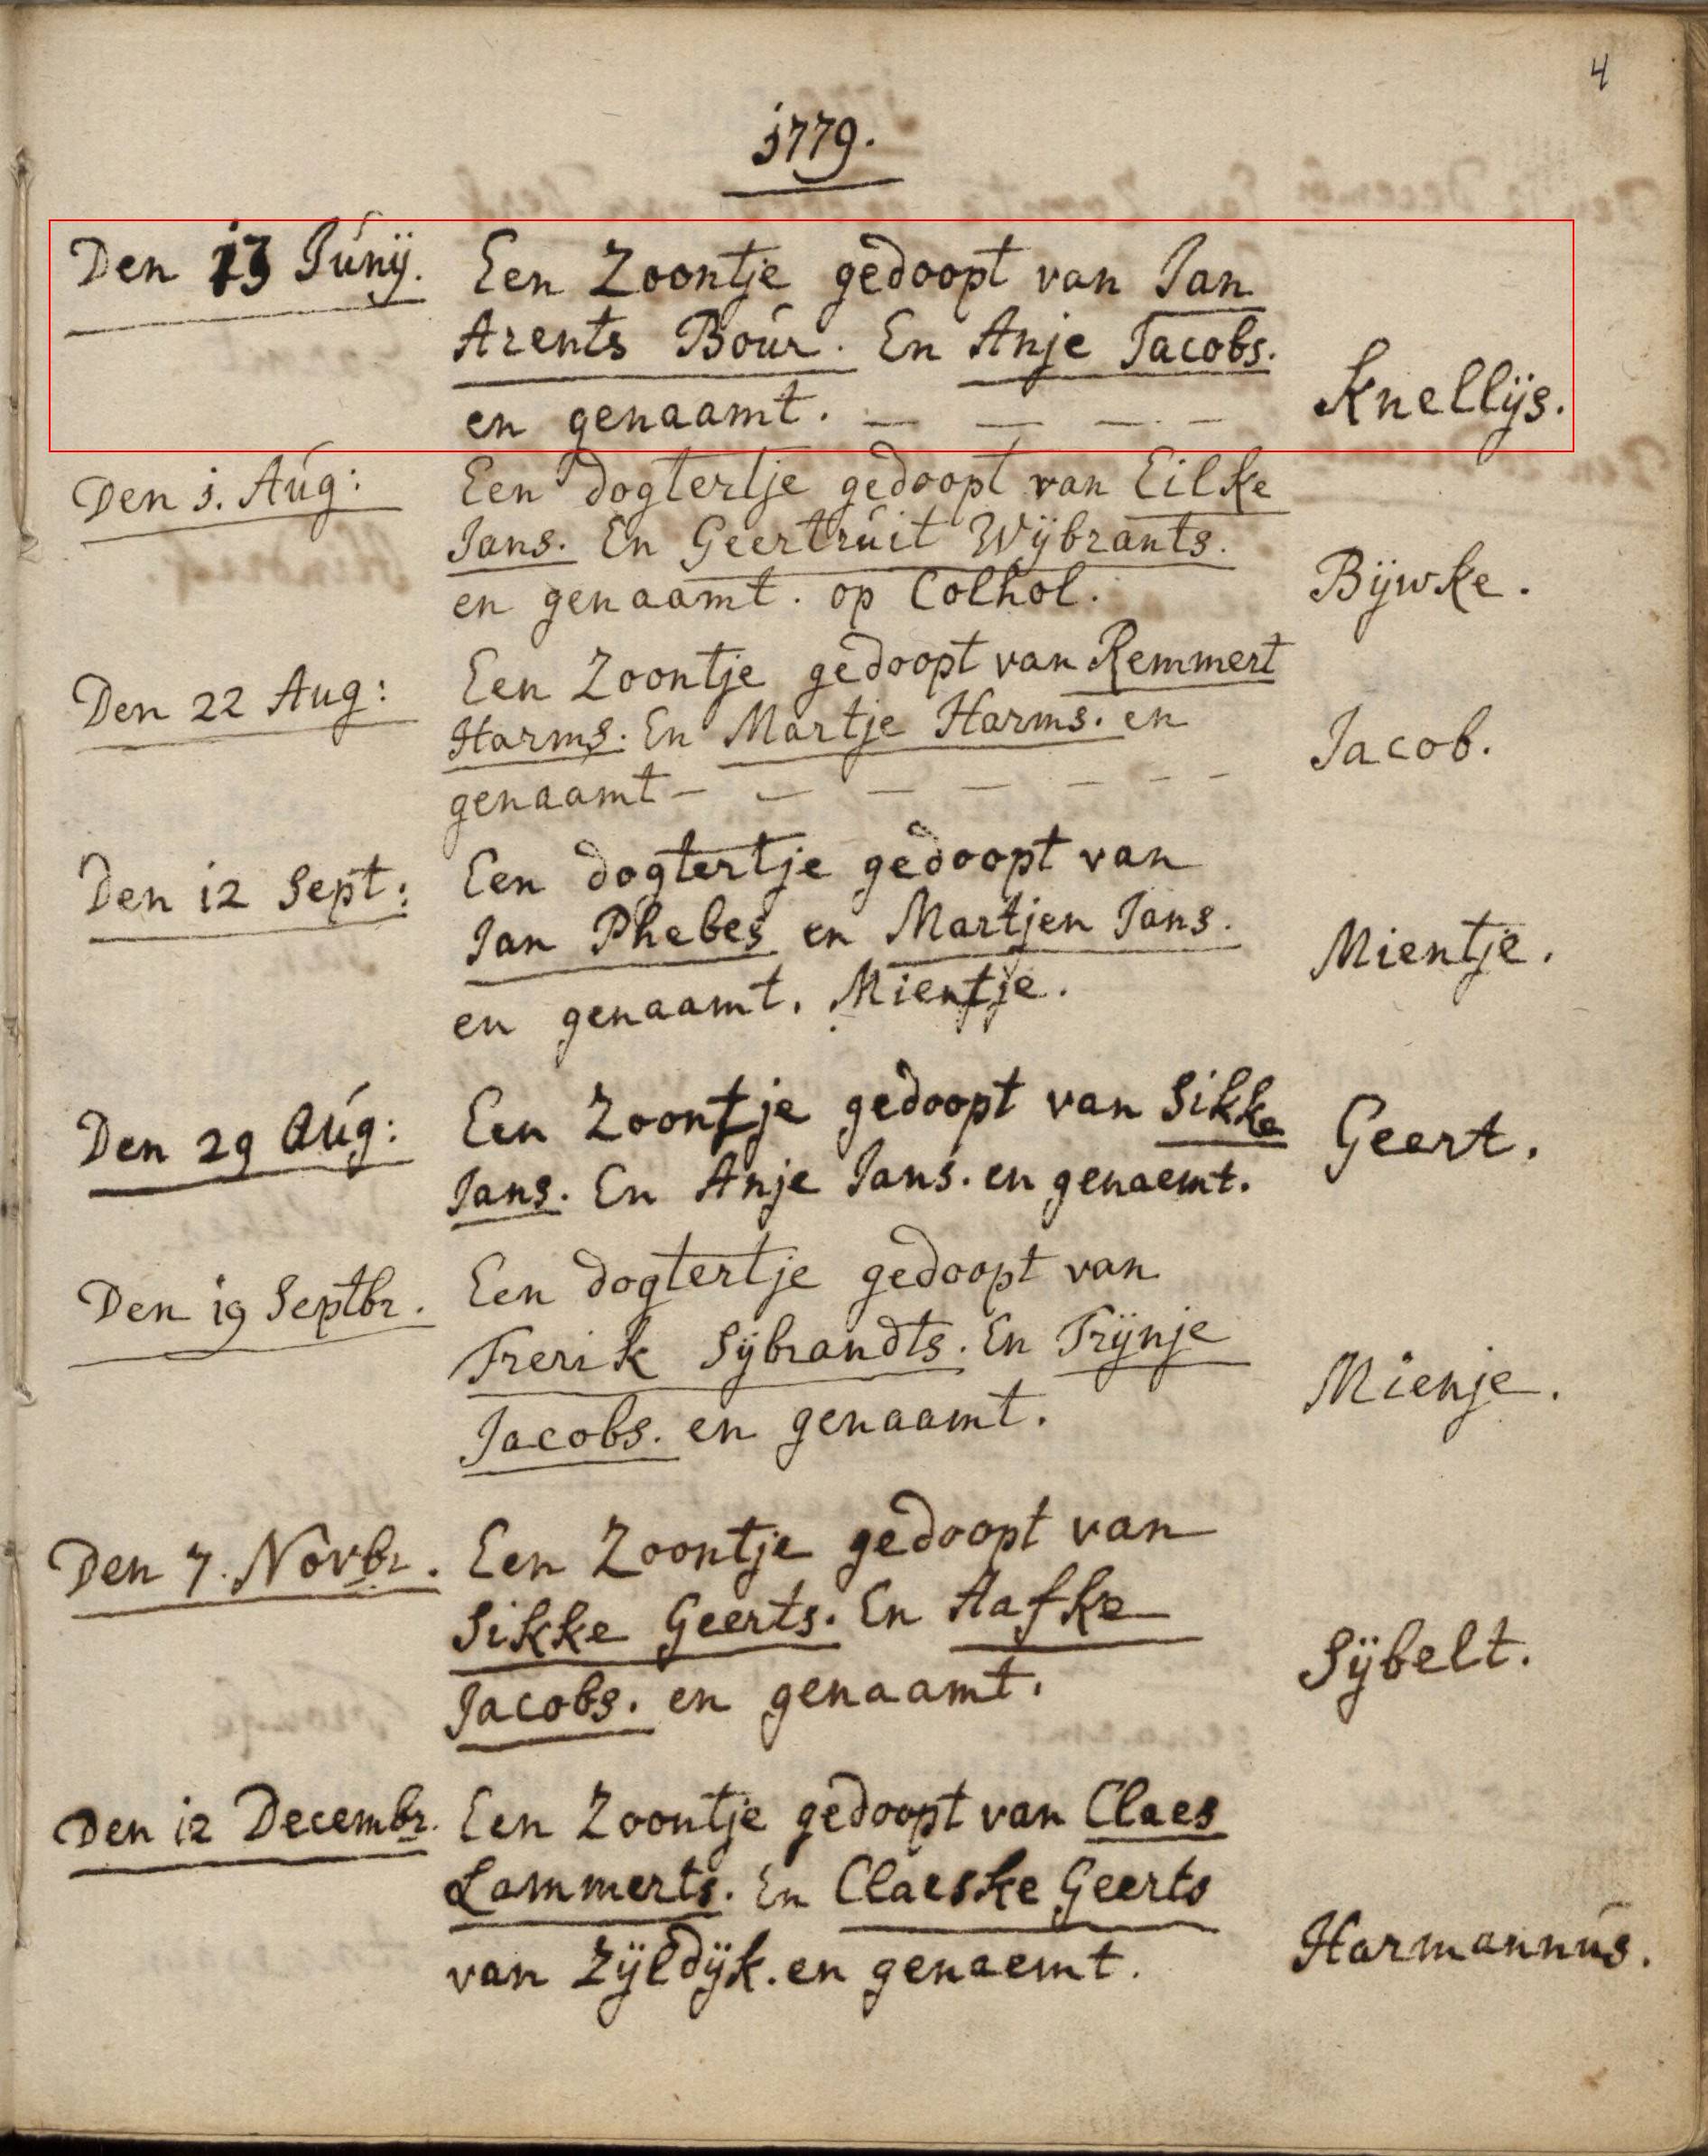 4
1779.
Den 13 Junÿ. Een Zoontje gedoopt van Jan
Arents Boúr. En Anje Jacobs.
en genaamt. — — — — Knellÿs.
Den 1. Aúg: Een dogtertje gedoopt van Eilke
Jans. En Geertrúit Wÿbrants.
en genaamt. op Colhol. Bÿwke.
Den 22 Aug: Een Zoontje gedoopt van Remmert
Harms. En Martje Harms. en
genaamt — — — — — — Jacob.
Den 12 Sept: Een dogtertje gedoopt van
Jan Phebes en Martjen Jans.
en genaamt. Mientje. Mientje.
Den 29 Aúg: Een Zoontje gedoopt van Sikke
Jans. En Anje Jans. en genaemt. Geert.
Den 19 Septbr. Een dogtertje gedoopt van
Frerik Sÿbrandts. En Trÿnje
Jacobs. en genaamt. Mienje.
Den 7. Novbr. Een Zoontje gedoopt van
Sikke Geerts. En Aafke
Jacobs. en genaamt. Sÿbelt.
Den 12 Decembr. Een Zoontje gedoopt van Claes
Lammerts. En Claeske Geerts
van Zÿldÿk. en genaemt. Harmannús.